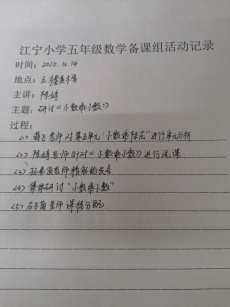 江宁小学五年级数学备课组活动记录
时间：2020.10.14
地点：五楼
主讲：陈婧
主题：研讨《小数乘小数》
过程：
(1) 老师对第五单元“小数乘除法”进行单元分析
(2) 陈婧老师针对《小数乘小数》进行说课
(3) 老师精彩的发言
(4) 集体研讨“小数乘小数”
(5) 老师课程分配